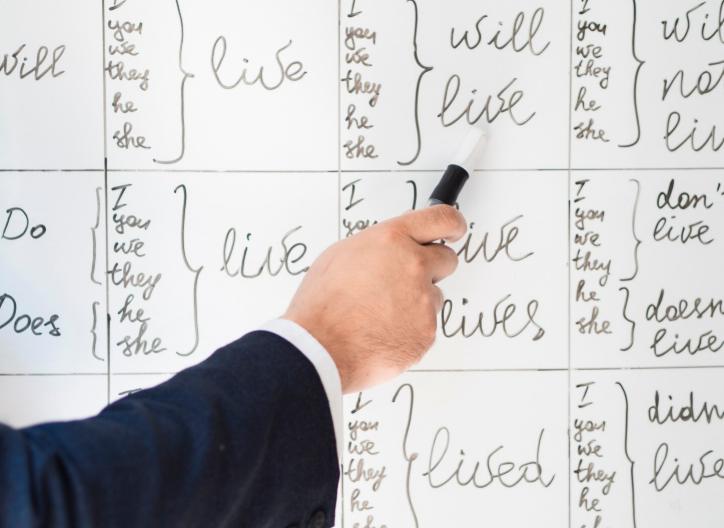 will
I
you
we
they
he
she
live
I
you
we
they
he
she
will
live
I
you
we
they
he
she
wil
not
liv
Do
Does
I
you
we
they
he
she
live
I
you
live
lives
I
you
we
they
he
she
don'
live
doesn
live
I
you
we
they
he
she
lived
I
you
we
they
he
didn
live